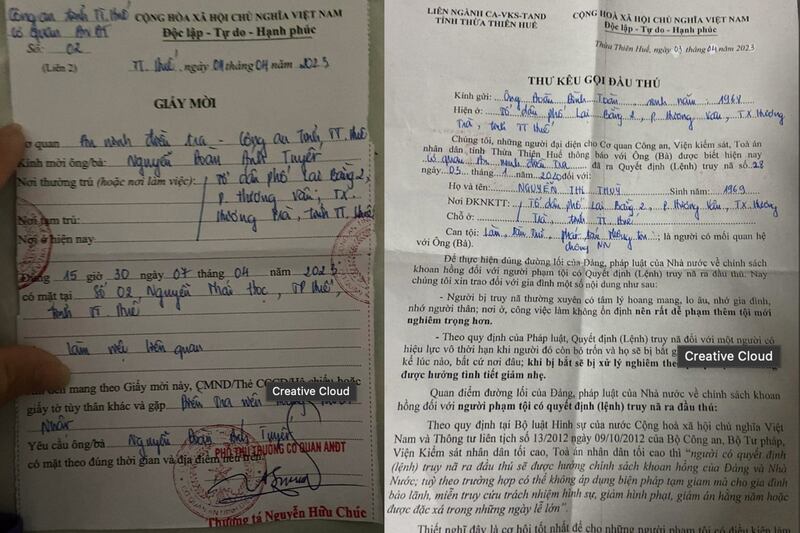 Công an tỉnh TT. Huế
Cơ Quan An ĐT
Số: 02
(Liên 2)
CỘNG HÒA XÃ HỘI CHỦ NGHĨA VIỆT NAM
Độc lập - Tự do - Hạnh phúc
TT. Huế, ngày 04 tháng 04 năm 2023
GIẤY MỜI
Cơ quan An ninh điều tra - Công an Tỉnh, TT. Huế
Kính mời ông/bà: Nguyễn Đoan Anh Tuyên
Nơi thường trú (hoặc nơi làm việc): Tổ dân phố Lai Bằng 2,
P. Hương Vân, TX.
Hương Trà, tỉnh TT. Huế
Nơi tạm trú:
Nơi ở hiện nay
Đúng 15 giờ 30 ngày 07 tháng 04 năm 2023
có mặt tại Số 02 Nguyễn Khái Học, TP Huế,
tỉnh TT. Huế
Làm việc liên quan
mang theo Giấy mời này, CMND/Thẻ CCCD/Hộ chiếu hoặc
Creative Cloud
giấy tờ tùy thân khác và gặp Điều tra viên
Yêu cầu ông/bà Nguyễn Đoan Anh Tuyên
có mặt theo đúng thời gian và địa điểm nêu trên
PHÓ THỦ TRƯỞNG CƠ QUAN ANĐT
Thượng tá Nguyễn Hữu Chúc
LIÊN NGÀNH CA-VKS-TAND
TỈNH THỪA THIÊN HUẾ
CỘNG HOÀ XÃ HỘI CHỦ NGHĨA VIỆT NAM
Độc lập - Tự do - Hạnh phúc
Thừa Thiên Huế, ngày 03 tháng 04 năm 2023
THƯ KÊU GỌI ĐẦU THÚ
Kính gửi: Ông Đoàn Đình Toàn, sinh năm: 1964
Hiện ở: Tổ dân phố Lai Bằng 2, P. Hương Vân, TX. Hương
Trà, tỉnh TT. Huế
Chúng tôi, những người đại diện cho Cơ quan Công an, Viện kiểm sát, Toà án
nhân dân tỉnh Thừa Thiên Huế thông báo với Ông (Bà) được biết hiện nay
Cơ quan An ninh điều tra đã ra Quyết định (Lệnh) truy nã số 28
ngày 03 tháng 1 năm 2020 đối với:
Họ và tên: NGUYỄN THỊ THUỶ Sinh năm: 1969
Nơi ĐKNKTT: Tổ dân phố Lai Bằng 2, P. Hương Vân, TX. Hương
Chỗ ở: Trà, tỉnh TT. Huế
Can tội: Làm, tàng trữ, phát tán thông tin chống NN; là người có mối quan hệ
với Ông (Bà).
Để thực hiện đúng đường lối của Đảng, pháp luật của Nhà nước về chính sách
khoan hồng đối với người phạm tội có Quyết định (Lệnh) truy nã ra đầu thú. Nay
chúng tôi xin trao đổi với gia đình một số nội dung như sau:
- Người bị truy nã thường xuyên có tâm lý hoang mang, lo âu, nhớ gia đình,
nhớ người thân; nơi ở, công việc làm không ổn định nên rất dễ phạm thêm tội mới
nghiêm trọng hơn.
- Theo quy định của Pháp luật, Quyết định (Lệnh) truy nã đối với một người có
hiệu lực vô thời hạn khi người đó còn bỏ trốn và họ sẽ bị bắt
Creative Cloud
kể lúc nào, bất cứ nơi đâu; khi bị bắt sẽ bị xử lý nghiêm theo
được hưởng tình tiết giảm nhẹ.
Quan điểm đường lối của Đảng, pháp luật của Nhà nước về chính sách khoan
hồng đối với người phạm tội có quyết định (lệnh) truy nã ra đầu thú:
Theo quy định tại Bộ luật Hình sự của nước Cộng hoà xã hội chủ nghĩa Việt
Nam và Thông tư liên tịch số 13/2012 ngày 09/10/2012 của Bộ Công an, Bộ Tư pháp,
Viện Kiểm sát nhân dân tối cao, Toà án nhân dân tối cao thì "người có quyết định
(lệnh) truy nã ra đầu thú sẽ được hưởng chính sách khoan hồng của Đảng và Nhà
Nước; tuỳ theo trường hợp có thể không áp dụng biện pháp tạm giam mà cho gia
đình bảo lãnh, miễn truy cứu trách nhiệm hình sự, giảm hình phạt, giảm án hằng năm hoặc
được đặc xá trong những ngày lễ lớn".
Thiết nghĩ đây là cơ hội tốt nhất để cho những người phạm tội có điều kiện làm